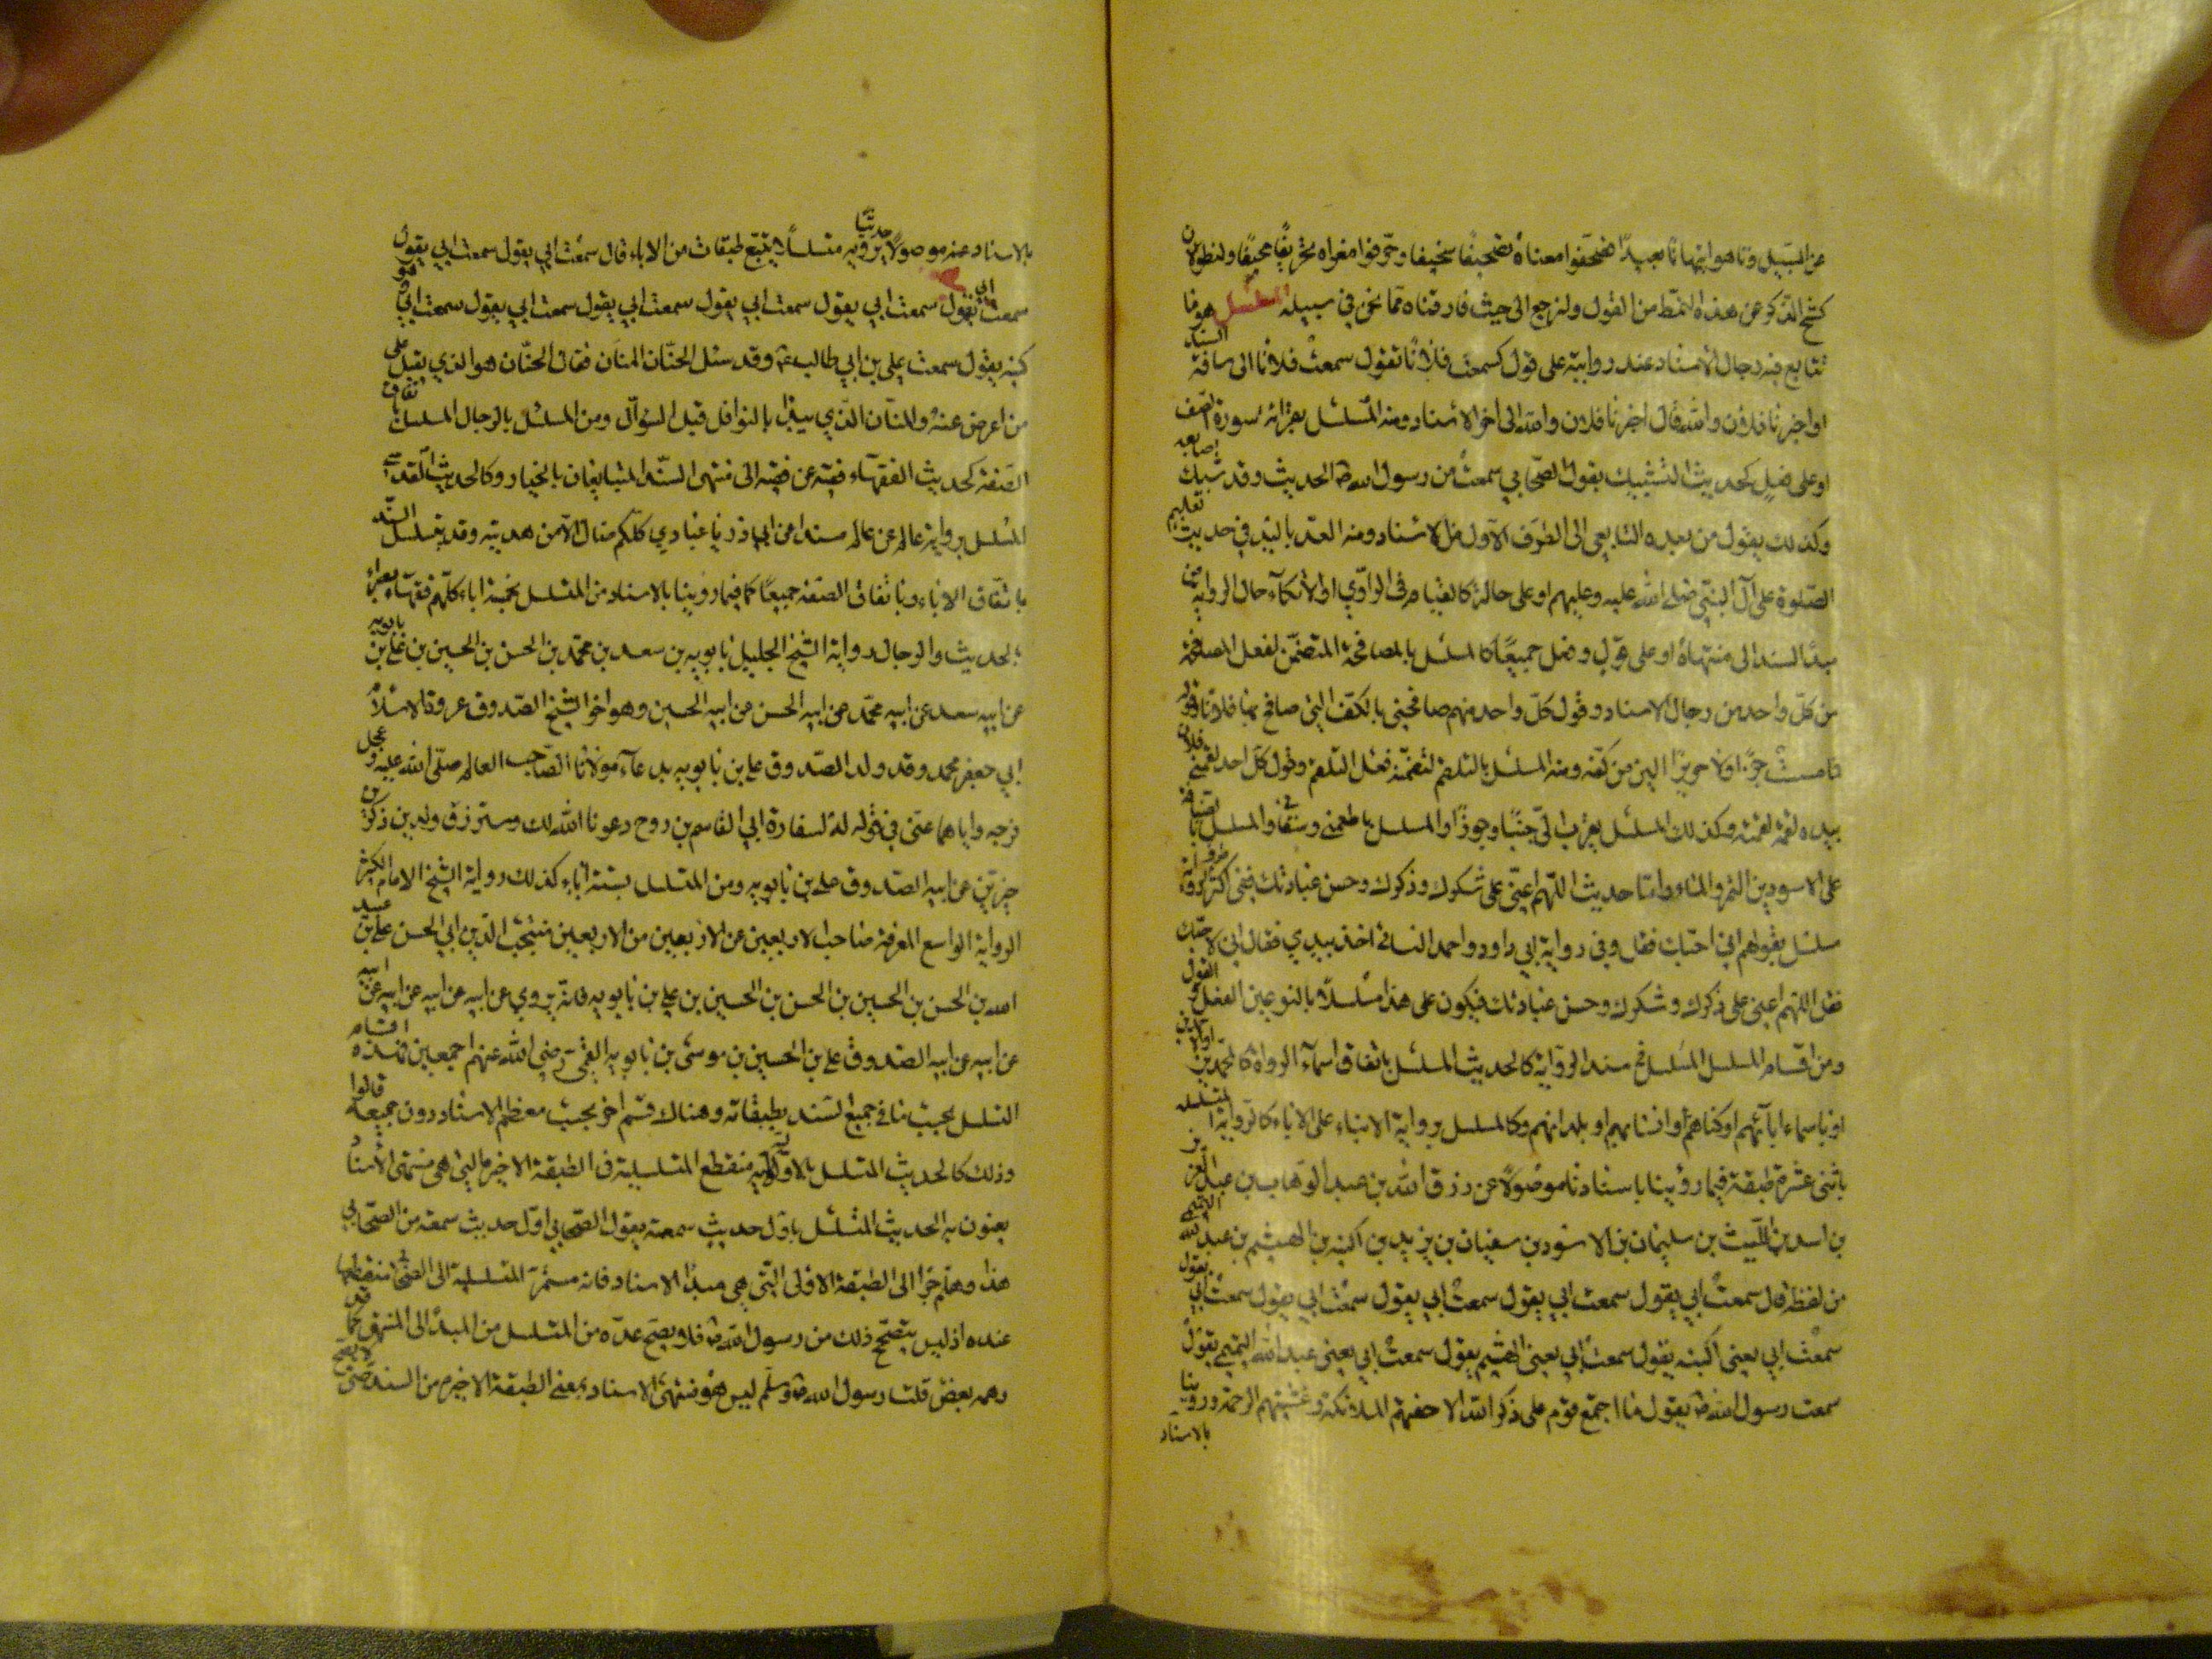 عن السبيل وتاهوا تيهانا بعيدا فصحفوا معناه تصحيفا سخيفا وحرفوا مغزاه تحريفا محيفا ولنطو الآن
كشح الذكر عن هذا النمط من القول ولنرجع الى حيث فارقناه مما نحن في سبيله المسلسل هو ما
تتابع فيه رجال الاسناد عند روايته على قول كسمعت فلانا يقول سمعت فلانا الى ساقة السند
او اخبرنا فلان والله قال اخبرنا فلان والله الى اخر الاسناد ومنه المسلسل بقراءة سورة الصف
او على فعل كحديث التشبيك يقول الصحابي سمعت من رسول الله ص الحديث وقد شبك اصابعه
وكذلك يقول من بعده التابعي الى الطرف الاول من الاسناد ومنه العد باليد في حديث تعليم
الصلوة على آل النبي صلى الله عليه وعليهم او على حالة كالقيام في الراوي او الاتكاء حال الرواية من
مبدأ السند الى منتهاه او على قول وفعل جميعا كالمسلسل بالمصافحة المتضمن لفعل المصافحة
من كل واحد من رجال الاسناد وقول كل واحد منهم صافحني بالكف التي صافح بها فلانا وقوله
فما مسست خزا ولا حريرا الين من كفه ومنه المسلسل بالتلقيم لتضمنه فعل التلقيم وقول كل احد لقمني فلان
بيده لقمة لقمة وكذلك المسلسل بقرب الي جبنا وجوزا والمسلسل باطعمني وسقاني والمسلسل بالضيافة
على الاسودين التمر والماء واما حديث اللهم اعني على شكرك وذكرك وحسن عبادتك ففي اكثر طرقه
مسلسل بقولهم اني احبك فقل وفي رواية ابي داود واحمد النسائي اخذ بيدي فقال اني لاحبك
فقل اللهم اعني على ذكرك وشكرك وحسن عبادتك فيكون على هذا مسلسلا بالنوعين الفعل والقول
ومن اقسام المسلسل المسلسل في سند الرواية كالحديث المسلسل باتفاق اسماء الرواة كالمحمدين
او باسماء ابائهم او كناهم او انسابهم او بلدانهم وكالمسلسل برواية الابناء على الاباء كالرواية المتسلسلة
باثنى عشرة طبقة فيما رويناه باسنادنا موصولا عن رزق الله بن عبد الوهاب بن عبد العزيز
بن اسد بن الليث بن سليمان بن الاسود بن سفيان بن يزيد بن اكينه بن الهيثم بن عبد الله التميمي
من لفظه قال سمعت ابي يقول سمعت ابي يقول سمعت ابي يقول سمعت ابي يقول سمعت ابي يقول
سمعت ابي يعني اكينه يقول سمعت ابي يعني الهيثم يقول سمعت ابي يعني عبد الله التميمي يقول
سمعت رسول الله ص يقول ما اجتمع قوم على ذكر الله الا حفتهم الملائكة وغشيتهم الرحمة وروينا
بالاسناد
بالاسناد عنه موصولا يرويه حديثا متسلسلا بتسع طبقات من الاباء قال سمعت ابي يقول سمعت ابي يقول
سمعت ابي يقول سمعت ابي يقول سمعت ابي يقول سمعت ابي يقول سمعت ابي يقول سمعت ابي وهو
كينه يقول سمعت علي بن ابي طالب ع وقد سئل الحنان المنان فقال الحنان هو الذي يقبل على
من اعرض عنه والمنان الذي يبدأ بالنوافل قبل السؤال ومن المسلسل بالرجال المسلسل باتفاق
الصفة كحديث الفقهاء فقيه عن فقيه الى منتهى السند المتبايعان بالخيار وكالحديث القدسي
المسلسل برواية عالم عن عالم مسندا عن ابي ذر يا عبادي كلكم ضال الا من هديته وقد يتسلسل السند
باتفاق الاباء وباتفاق الصفة جميعا كما فيما روينا بالاسناد من المتسلسل بخمسة اباء كلهم فقهاء بصراء
بالحديث والرجال رواية الشيخ الجليل بابويه بن سعد بن محمد بن الحسن بن الحسين بن علي بن بابويه
عن ابيه سعد عن ابيه محمد عن ابيه الحسن عن ابيه الحسين وهو اخو الشيخ الصدوق عروة الاسلام
ابي جعفر محمد وقد ولد الصدوق علي بن بابويه بدعاء مولانا الصاحب العالم صلى الله عليه وعجل
فرجه واياهما عنى في قوله له لسفارة ابي القاسم بن روح دعونا الله لك وسترزق ولدين ذكرين
خيرين عن ابيه الصدوق علي بن بابويه ومن المتسلسل بستة اباء كذلك رواية الشيخ الامام الكثير
الرواية الواسع المعرفة صاحب الاربعين عن الاربعين من الاربعين منتجب الدين ابي الحسن علي بن عبيد
الله بن الحسن بن الحسين بن الحسن بن الحسين بن علي بن بابويه فانه يروي عن ابيه عن ابيه عن ابيه عن ابيه
عن ابيه عن ابيه الصدوق علي بن الحسين بن موسى بن بابويه القمي رضي الله عنهم اجمعين فهذه اقسام
التسلسل بحسب ما في جميع السند بطبقاته وهناك قسم اخر بحسب معظم الاسناد دون جميعه قالوا
وذلك كالحديث المتسلسل بالاولية منقطع المتسلسلية في الطبقة الاخيرة التي هي منتهى الاسناد
يعنون به الحديث المتسلسل باول حديث سمعته يقول الصحابي اول حديث سمعته من الصحابي
هذا وهلم جرا الى الطبقة الاولى التي هي مبدأ الاسناد فانه مستمر المتسلسلية الى الصحابي منقطعها
عنده اذ ليس يتصحح ذلك من رسول الله ص فلا يصح عده من المتسلسل من المبدأ الى المنتهى كما قد
وهمه بعض قلت رسول الله ص وسلم ليس هو منتهى الاسناد بمعنى الطبقة الاخيرة من السند حتى لا يصح